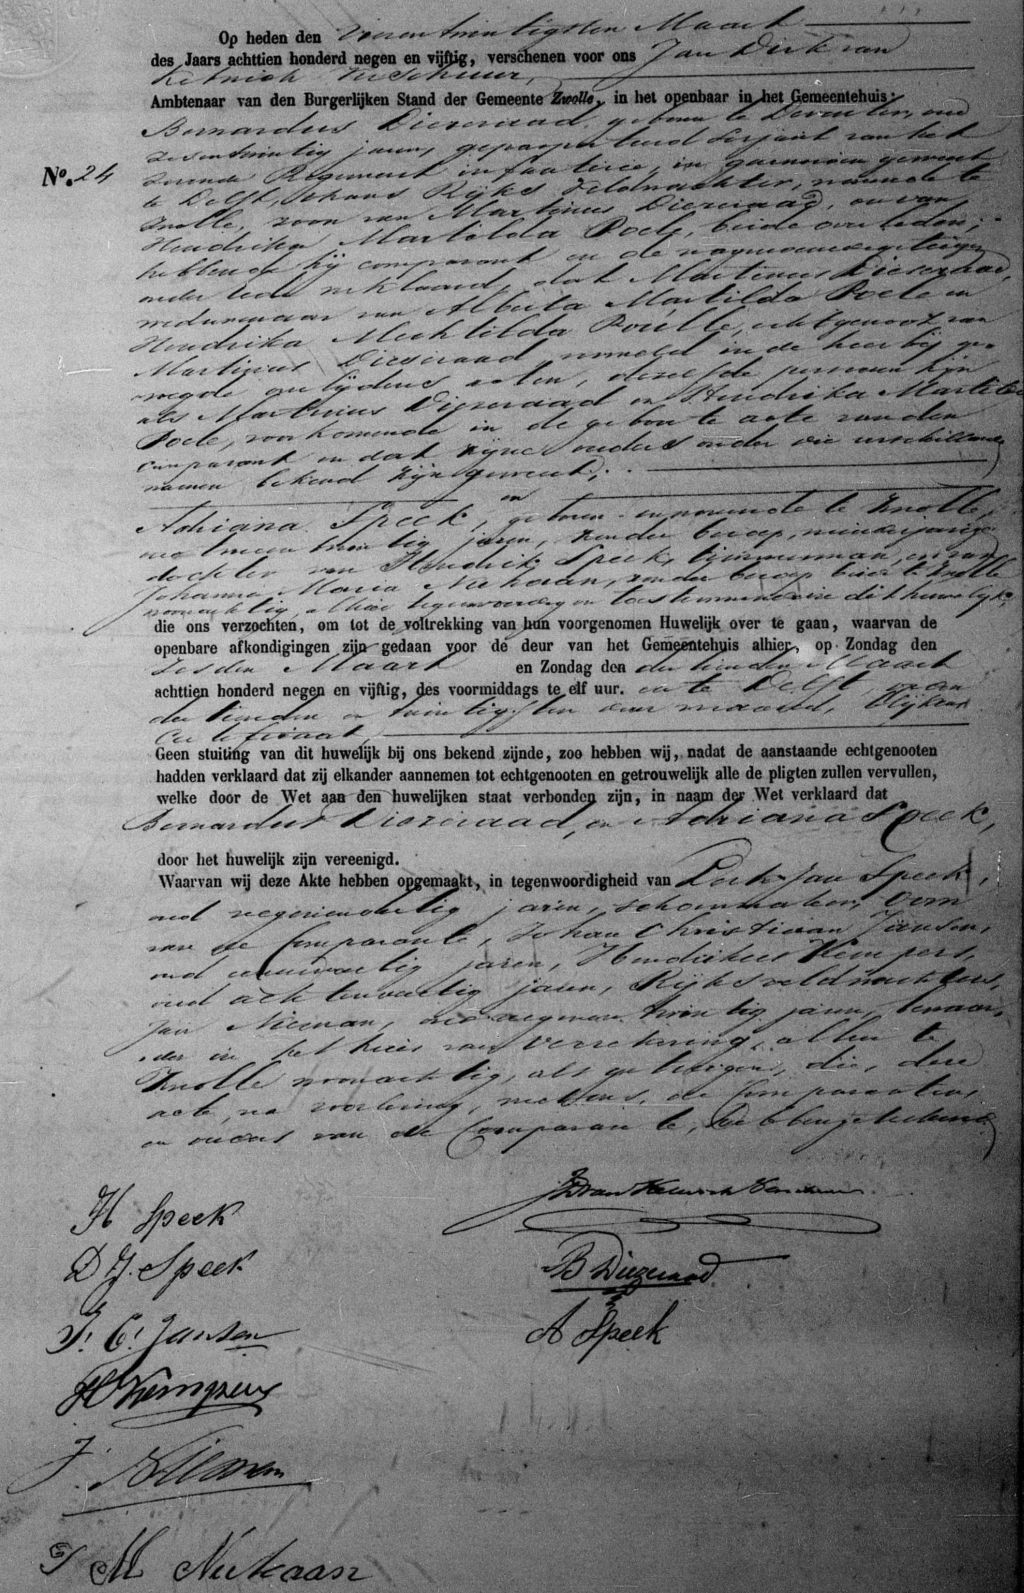 Op heden den vierentwintigsten Maart
des Jaars achttien honderd negen en vijftig, verschenen voor ons Jan Dirk van
Ketwich Verschuur,
Ambtenaar van den Burgerlijken Stand der Gemeente Zwolle, in het openbaar in het Gemeentehuis:
Bernardus Diezeraad, geboren te Deventer, oud
zesentwintig jaren, gepasporteerd Serjant van het
No. 24
Regement infanterie, in garnizoen geweest
te Delft, thans Rijks veldwachter, wonende te
Zwolle, zoon van Martinus Diezeraad, en van
Hendrika Martilda Poele, beide overleden;
hebbende hij comparant en de nagenoemde getuigen
onder eede verklaard, dat Martinus Dieseraad,
weduwnaar van Alberta Martilda Poele en
Hendrika Mechtilda Poielle, echtgenoot van
Martinus Dieseraad, vermeld in de hierbij ge-
voegde overlijdens acten, dezelfde personen zijn
als Martinus Diezeraad en Hendrika Martilda
Poele, voorkomende in de geboorte acte van den
comparant en dat zijne ouders onder die verschillende
namen bekend zijn geweest;
en
Adriana Speek, geboren en wonende te Zwolle,
oud tweeentwintig jaren, zonder beroep, minderjarige
dochter van Hendrik Speek, timmerman, en van
Johanna Maria Niehaan, zonder beroep, beide te Zwolle
woonachtig, alhier tegenwoordig en toestemmende in dit huwelijk;
die ons verzochten, om tot de voltrekking van hun voorgenomen Huwelijk over te gaan, waarvan de
openbare afkondigingen zijn gedaan voor de deur van het Gemeentehuis alhier, op Zondag den
zesden Maart en Zondag den dertienden Maart
achttien honderd negen en vijftig, des voormiddags te elf uur. en te Delft op den
dertienden en twintigsten dier maand, blijkens
Certificaat,
Geen stuiting van dit huwelijk bij ons bekend zijnde, zoo hebben wij, nadat de aanstaande echtgenooten
hadden verklaard dat zij elkander aannemen tot echtgenooten en getrouwelijk alle de pligten zullen vervullen,
welke door de Wet aan den huwelijken staat verbonden zijn, in naam der Wet verklaard dat
Bernardus Diezeraad, en Adriana Speek,
door het huwelijk zijn vereenigd.
Waarvan wij deze Akte hebben opgemaakt, in tegenwoordigheid van Derk Jan Speek,
oud negenendertig jaren, schoenmaker, Oom
van de Comparante, Johan Christiaan Jansen,
oud jaren, Hendrikus Kempers,
oud achtenveertig jaren, Rijksveldwachters,
Jan Nieman, oud negenentwintig jaren, bewaar-
der in het huis van verzekering, allen te
Zwolle woonachtig, als getuigen, die, deze
acte, na voorlezing, nevens, de Comparanten,
en ouders van de Comparante, hebben geteekend
H Speek
D J. Speek
J. C. Jansen
H Kempers
J. Nieman
J M Niehaan
JD van Ketwich Verschuur
B Diezeraad
A Speek